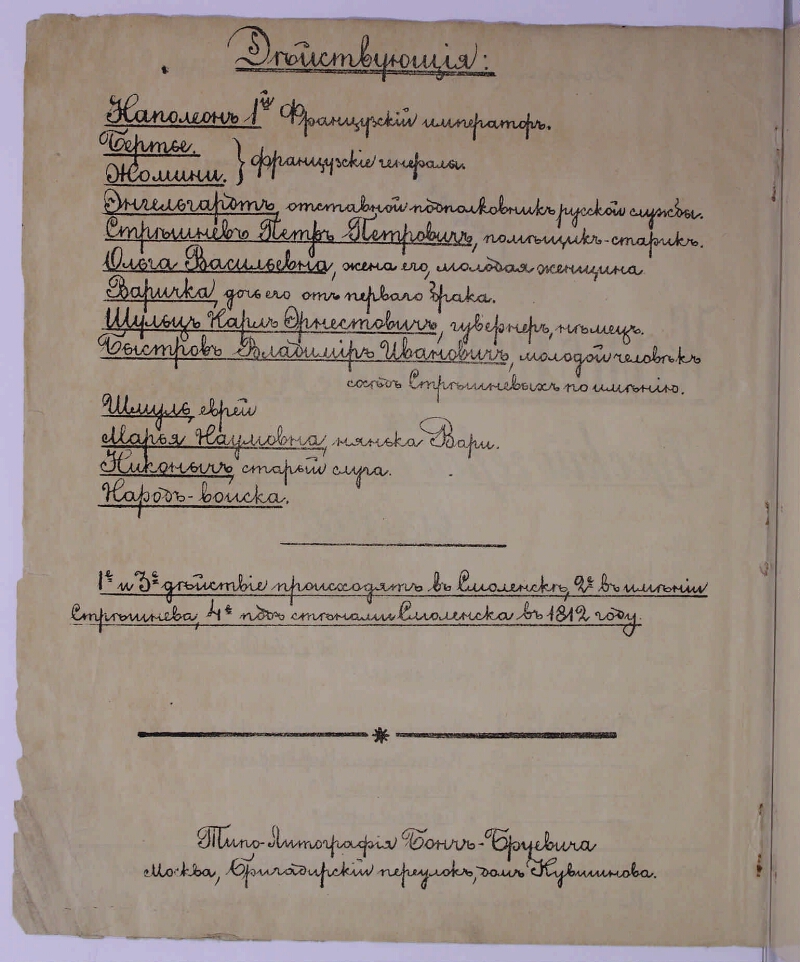 Дѣйствующія:
Наполеонъ 1й Французскій императоръ.
Бертье.
Жомини. } французскіе генералы.
Энгельгартъ, отставной подполковникъ русской службы.
Стрѣшневъ Петръ Петровичъ, помѣщикъ-старикъ.
Ольга Васильевна, жена его, молодая женщина
Варичка, дочь его отъ перваго брака.
Шульцъ Карлъ Эрнестовичъ, гувернеръ, нѣмецъ.
Быстровъ Владиміръ Ивановичъ, молодой человѣкъ
сосѣдъ Стрѣшневыхъ по имѣнію.
Шмуль, еврей
Марья Наумовна, нянька Вари.
Никонычъ, старый слуга.
Народъ-войска.
1е и 3е дѣйствіе происходятъ въ Смоленскѣ, 2е въ имѣніи
Стрѣшнева, 4е подъ стѣнами Смоленска въ 1812 году.
Типо-Литографія Бончъ-Бруевича
Москва, Бригадирскій переулокъ, домъ Кувшинова.